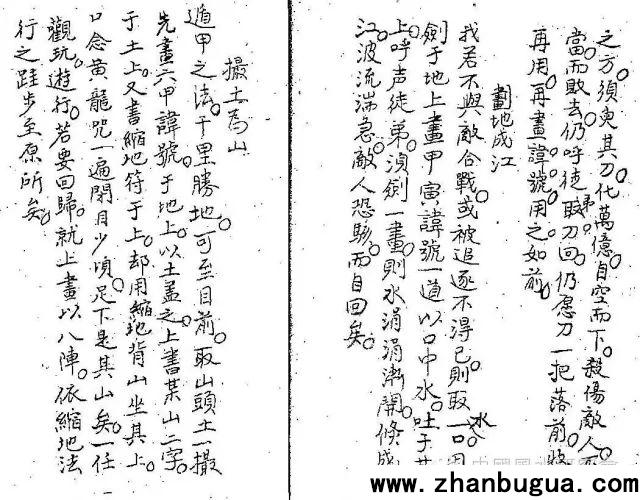 之方須臾其刀化萬億自空而下。殺傷敵人
當而敗去仍呼徒弟取刀回。仍愿刀一把落前
再用。再畫諱號用之如前。
劃地成江
我若不與敵合戰。或被追逐不得已。則取水一口。用
劍于地上畫甲寅諱號一道以口中水。吐于
上。呼声徒弟。湏劍一畫。則水涓涓漸開條成
江。波流湍急。敵人恐駭。而自回矣。
撮土為山
遁甲之法。千里勝地。可至目前。取山頭土一撮
先畫六甲諱號。于地上。以土盖之上書某山二字
于土上。又書縮地符于上。却用縮地背山坐其上
口念黄龍咒一遍閉目少頃。足下是其山矣。一任
觀玩。遊行。若要回歸。就上畫以八陣。依縮地法
行之跬步至原所矣。
www.zhanbugua.com